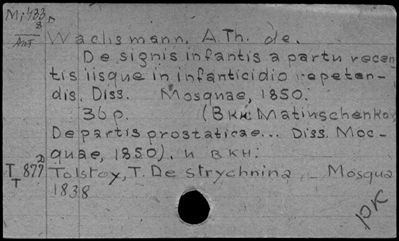 Wachsmann, A.Th. de.
De signis infantis a partu recen-
tis iisque in infanticidio repeten-
dis. Diss. Mosquae, 1850.
36 p. (Вкн: Matiuschenko
De partis prostaticae... Diss. Moc-
quae, 1850). и вкн:
T 877 Tolstoy, T. De strychnina, – Mosqua
T 1838
рк